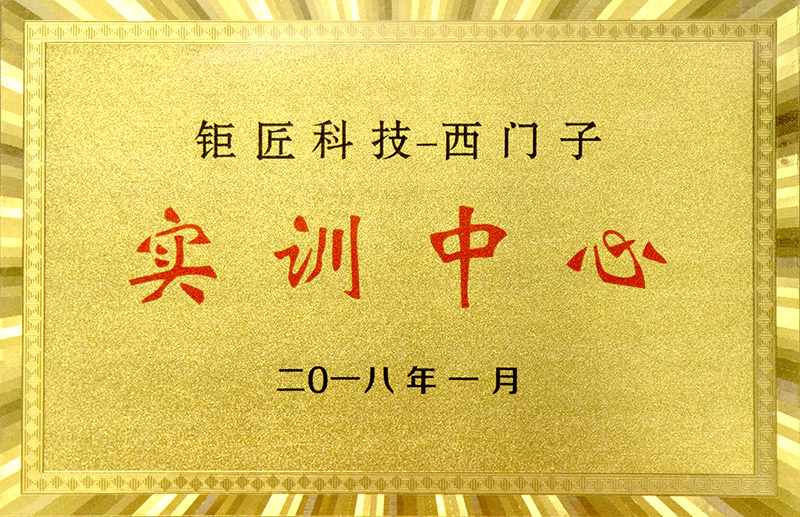 钜匠科技-西门子
实训中心
二0一八年一月